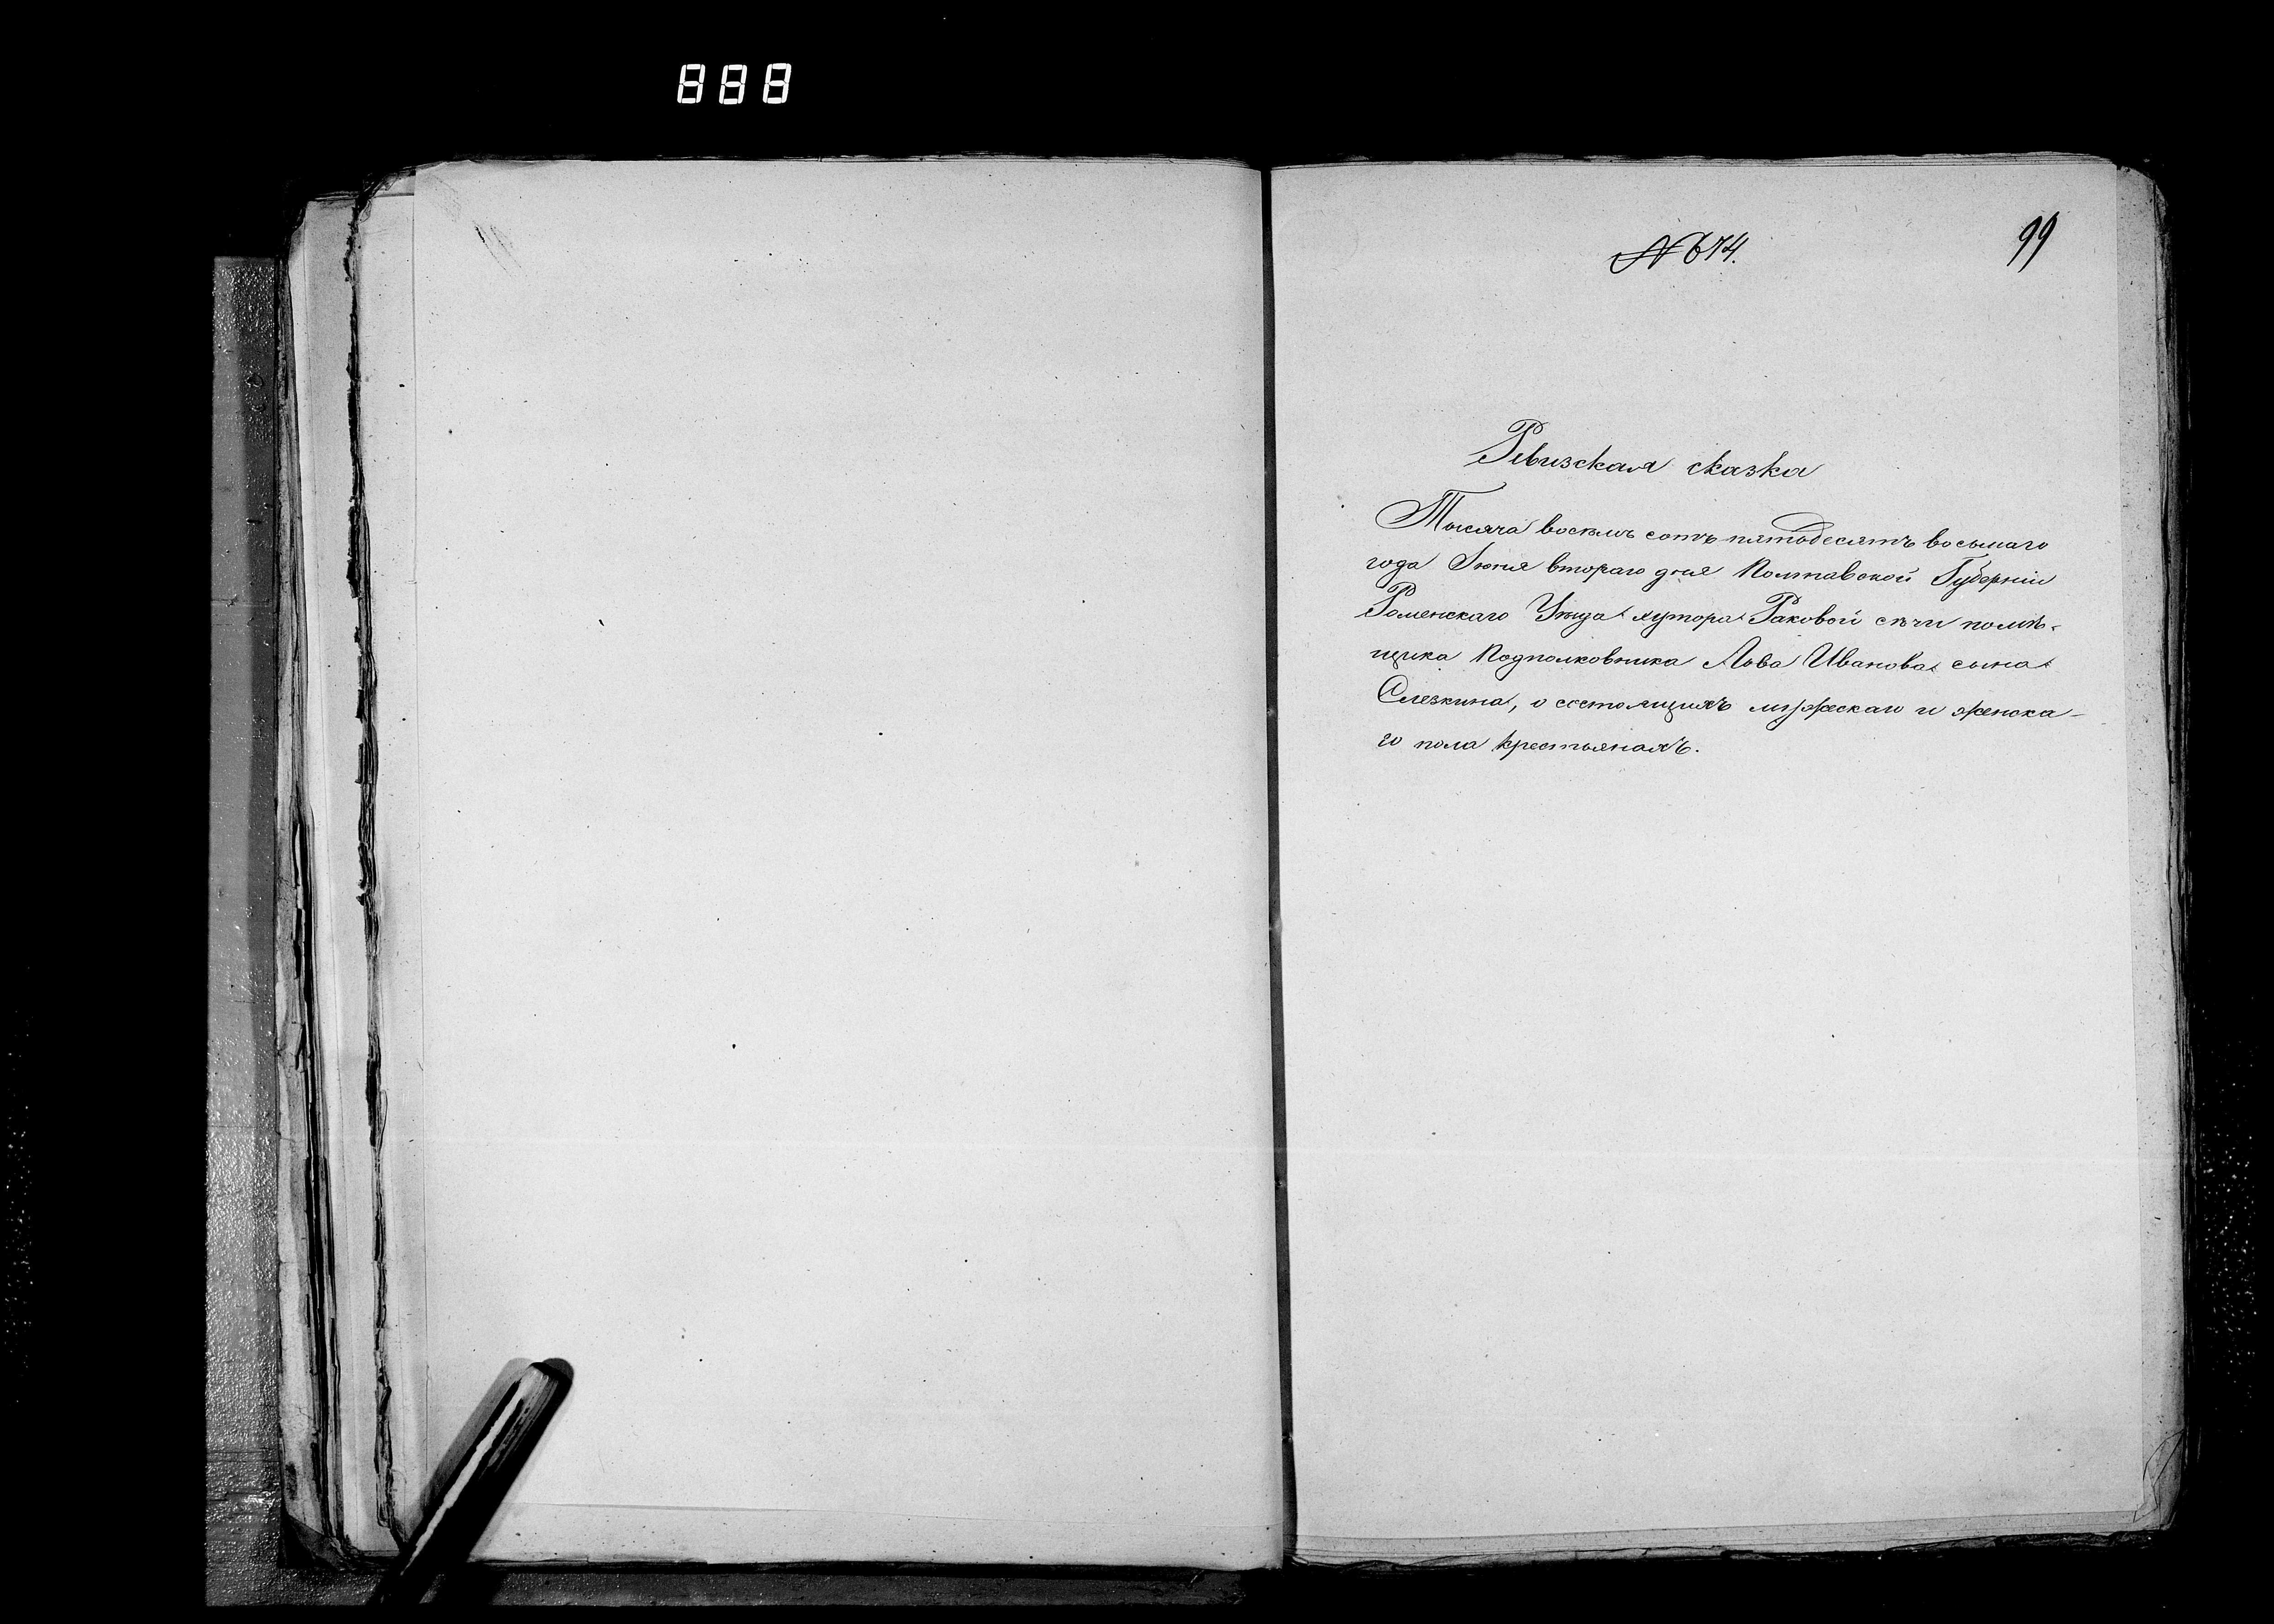 888
№ 674.
99
Ревизская сказка
Тысяча восемь сотъ пятьдесятъ восьмаго
года Іюня втораго дня Полтавской Губерніи
Роменскаго Уѣзда хутора Раковой сѣчи помѣ-
щика Подполковника Льва Иванова сына
Слезкина, о состоящихъ мужескаго и женска-
го пола крестьянахъ.